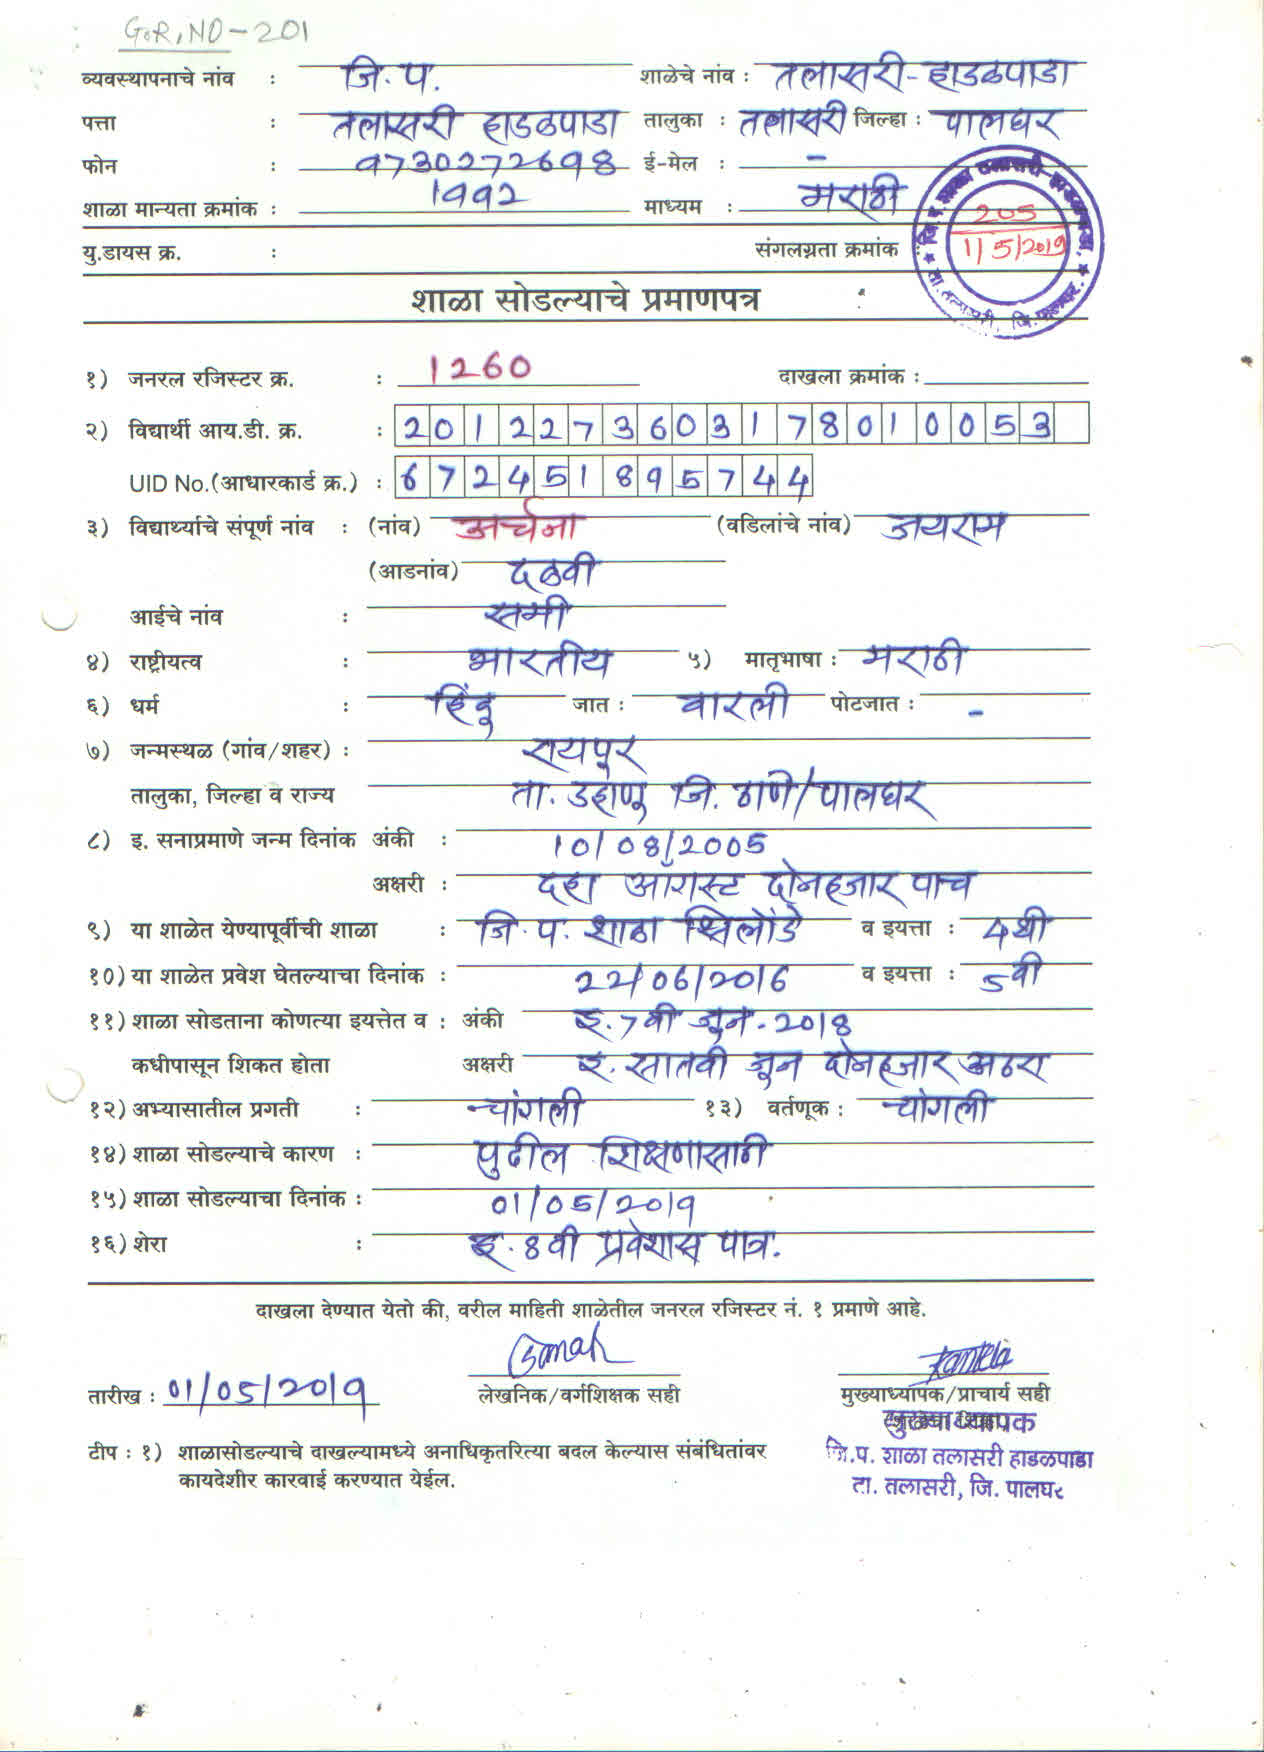 G.R.NO-201
व्यवस्थापनाचे नांव : जि. प. शाळेचे नांव : तलासरी-हाडळपाडा
पत्ता : तलासरी हाडळपाडा तालुका : तलासरी जिल्हा : पालघर
फोन : 9730272698 ई-मेल : -
शाळा मान्यता क्रमांक : 1992 माध्यम : मराठी
यु.डायस क्र. : संगलग्नता क्रमांक :
जि. प. शाळा तलासरी-हाडळपाडा, ता. तलासरी, जि. पालघर.
205
1/5/2019
शाळा सोडल्याचे प्रमाणपत्र
१) जनरल रजिस्टर क्र. : 1260 दाखला क्रमांक :
२) विद्यार्थी आय.डी. क्र. : 2012273603178010053
UID No.(आधारकार्ड क्र.) : 672451895744
३) विद्यार्थ्याचे संपूर्ण नांव : (नांव) अर्चना (वडिलांचे नांव) जयराम
(आडनांव) दळवी
आईचे नांव :
४) राष्ट्रीयत्व : भारतीय ५) मातृभाषा : मराठी
६) धर्म : हिंदू जात : वारली पोटजात : -
७) जन्मस्थळ (गांव/शहर) : रायपुर
तालुका, जिल्हा व राज्य ता. डहाणू जि. ठाणे/पालघर
८) इ. सनाप्रमाणे जन्म दिनांक अंकी : 10/08/2005
अक्षरी : दहा ऑगस्ट दोनहजार पाच
९) या शाळेत येण्यापूर्वीची शाळा : जि. प. शाळा शिलोंडे व इयत्ता : 4थी
१०) या शाळेत प्रवेश घेतल्याचा दिनांक : 22/06/2016 व इयत्ता : 5वी
११) शाळा सोडताना कोणत्या इयत्तेत व : अंकी इ. 7वी जून-2018
कधीपासून शिकत होता अक्षरी इ. सातवी जून दोनहजार अठरा
१२) अभ्यासातील प्रगती : चांगली १३) वर्तणूक : चांगली
१४) शाळा सोडल्याचे कारण : पुढील शिक्षणासाठी
१५) शाळा सोडल्याचा दिनांक : 01/05/2019
१६) शेरा : इ. 8वी प्रवेशास पात्र.
दाखला देण्यात येतो की, वरील माहिती शाळेतील जनरल रजिस्टर नं. १ प्रमाणे आहे.
तारीख : 01/05/2019 लेखनिक/वर्गशिक्षक सही मुख्याध्यापक/प्राचार्य सही
मुख्याध्यापक
टीप : १) शाळासोडल्याचे दाखल्यामध्ये अनाधिकृतरित्या बदल केल्यास संबंधितांवर
कायदेशीर कारवाई करण्यात येईल.
जि.प. शाळा तलासरी हाडळपाडा
ता. तलासरी, जि. पालघर